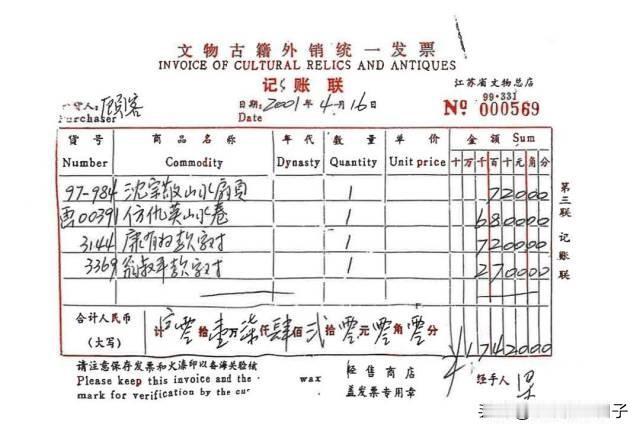 文物古籍外销统一发票
INVOICE OF CULTURAL RELICS AND ANTIQUES
记账联
江苏省文物总店
99·331
货人：顾客 日期：2001年4月16日 № 000569
Purchaser Date
货号 商品名称 年代 数量 单价 金额 Sum
Number Commodity Dynasty Quantity Unit price 十万千百十元角分
97-984 沈宗敬山水扇页 1 72000
00391 仿仇英山水卷 1 680000
3144 康有为款字对 1 720000
3369 翁叔平款字对 1 270000
第三联 记账联
合计人民币 计 零拾壹万柒仟肆佰贰拾零元零角零分
(大写) ¥1742000
请注意保存发票和火漆印以备海关验核 经售商店 经手人
Please keep this invoice and the wax 盖发票专用章
mark for verification by the cus